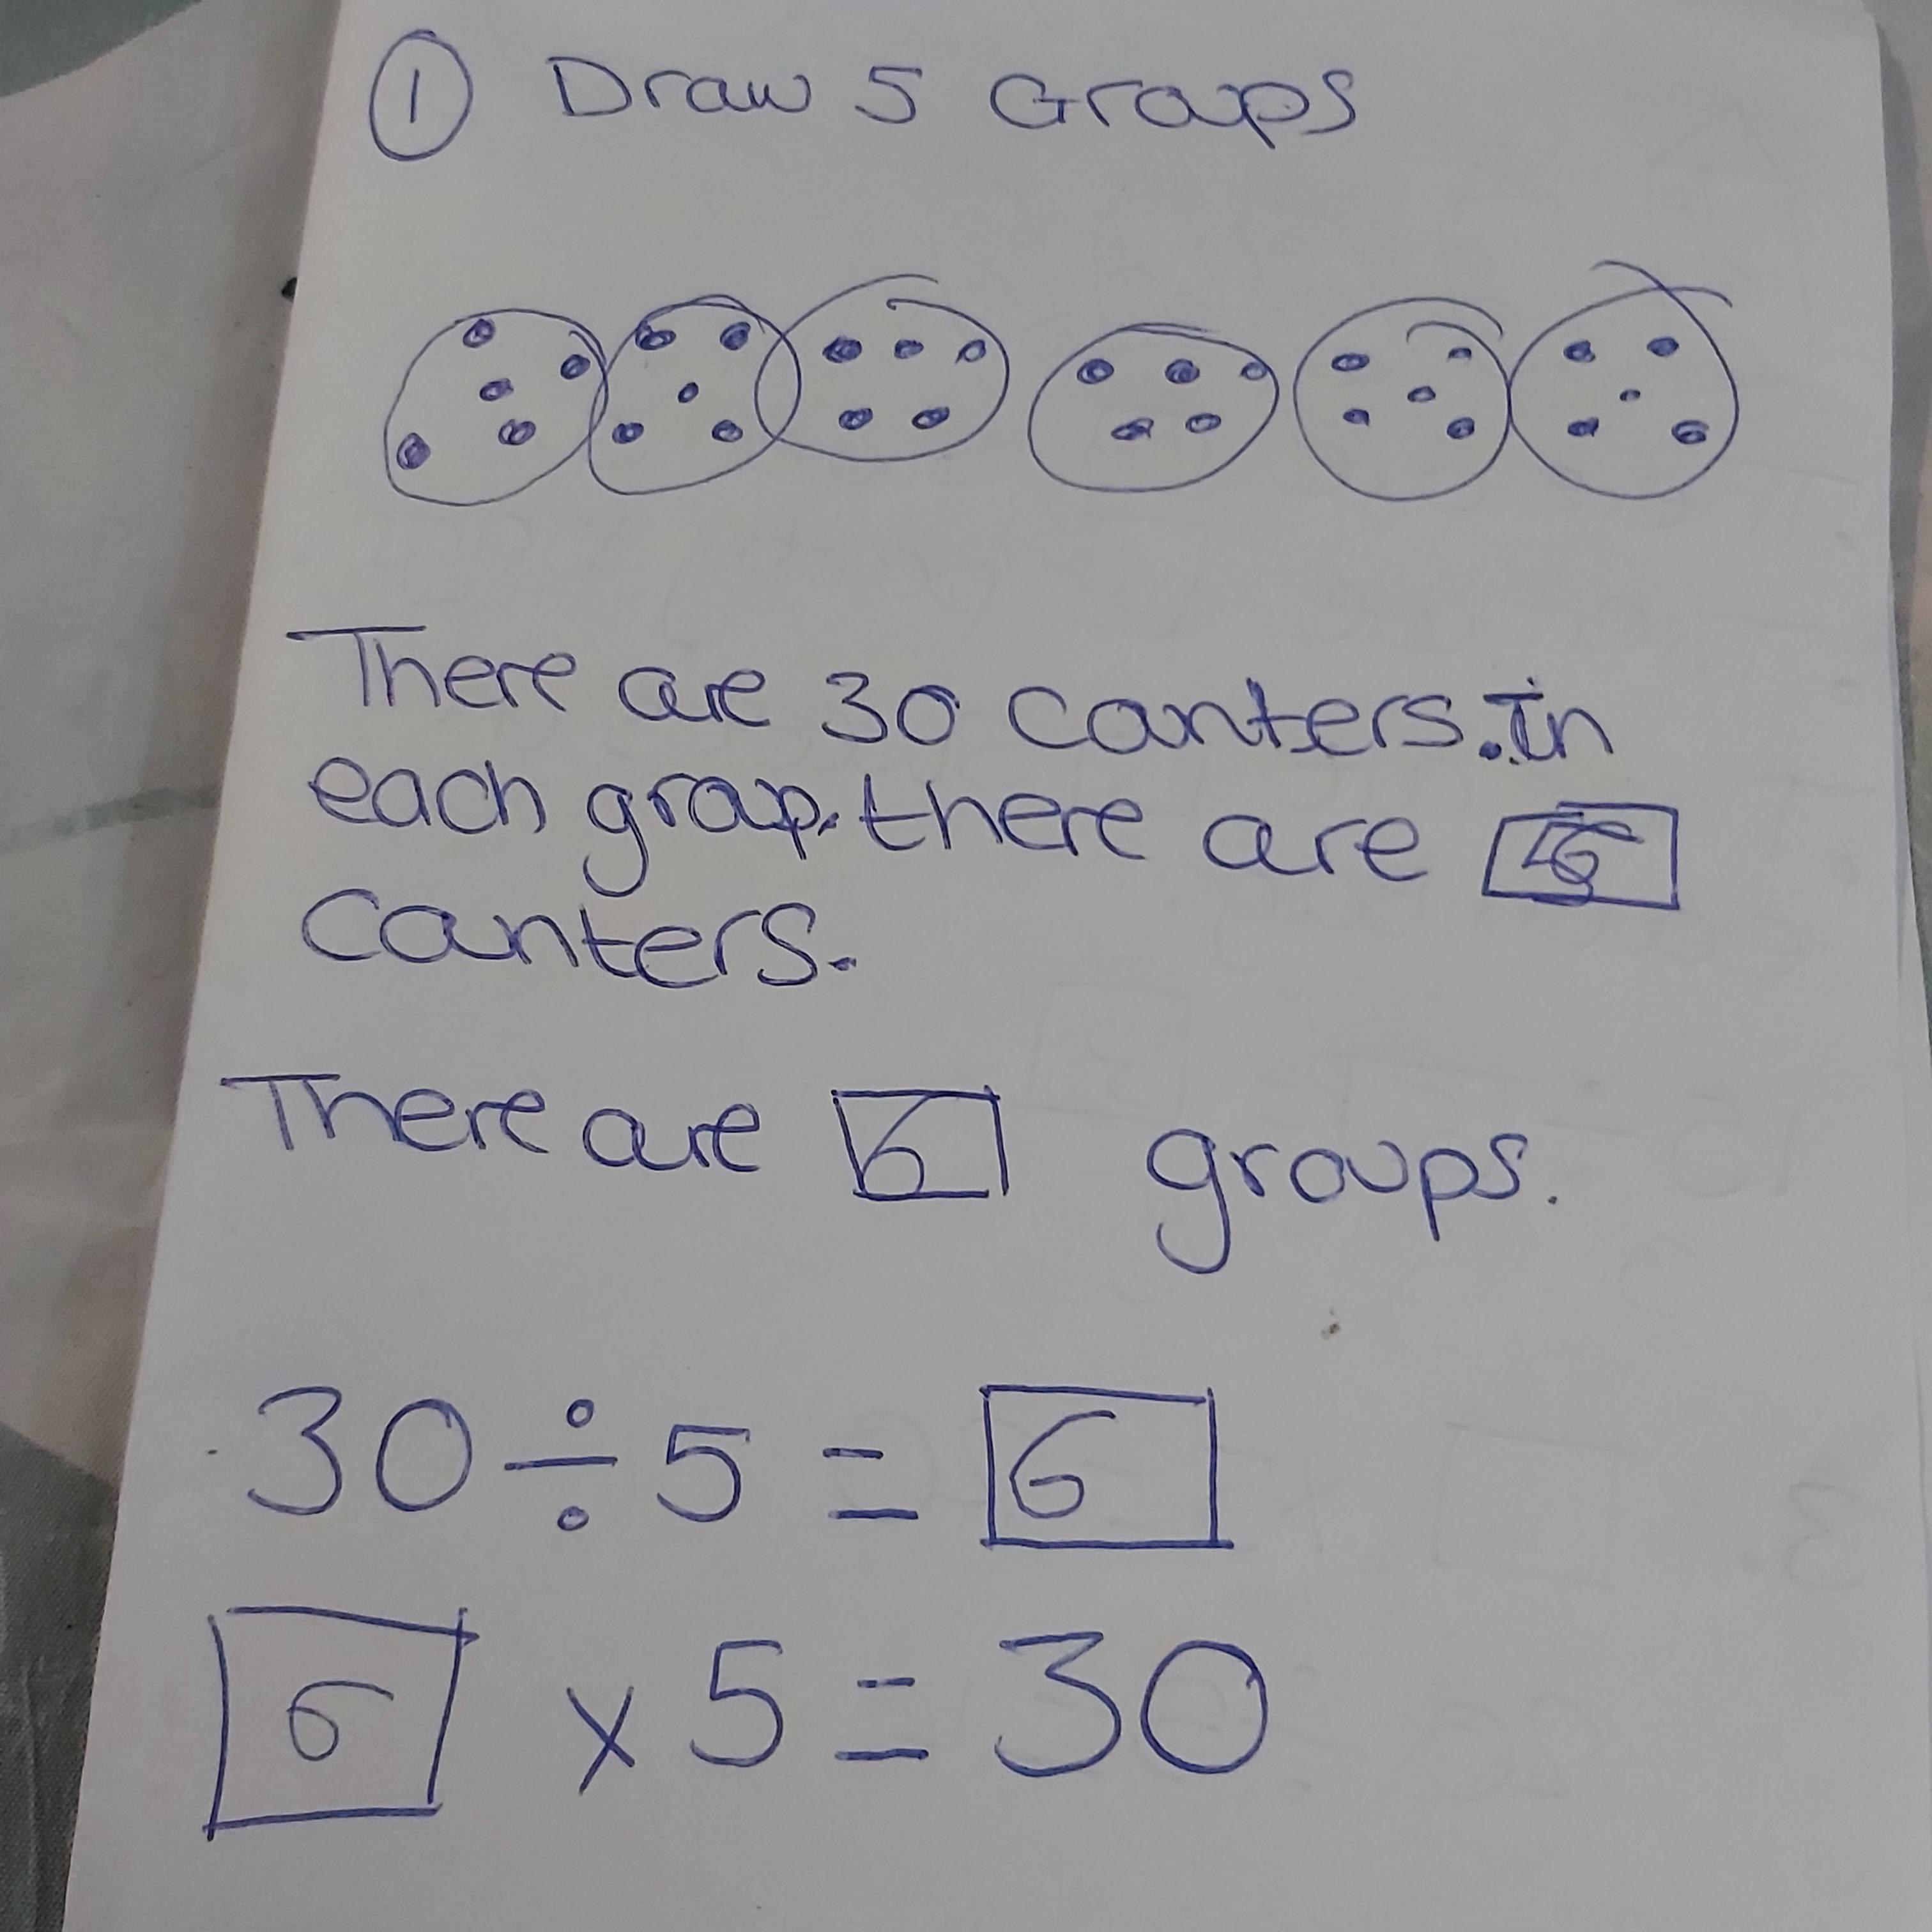 ① Draw 5 Groups
There are 30 counters. in
each group. there are
counters.
There are 6 groups.
30 ÷ 5 = 6
6 x 5 = 30